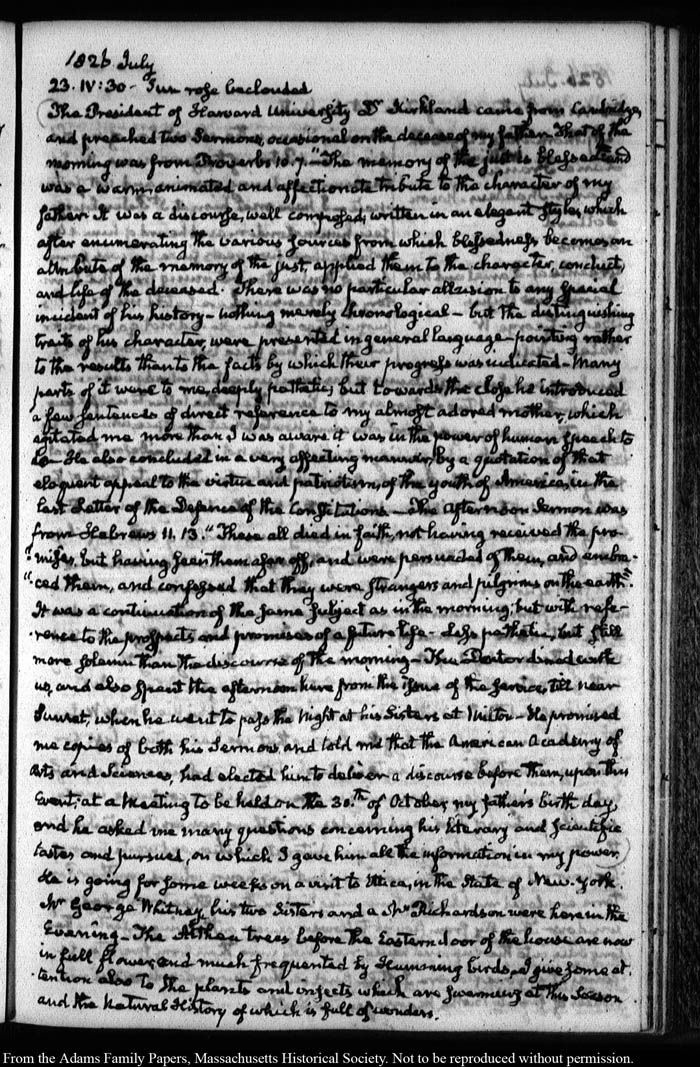 1826 July
23. IV:30 - Sun rose beclouded
The President of Harvard University Dr Kirkland came from Cambridge,
and preached two Sermons, occasional on the decease of my father. That of the
morning was from Proverbs 10.7. "The memory of the just is blessed" and
was a warm animated and affectionate tribute to the character of my
father. It was a discourse, well composed, written in an elegant style, which
after enumerating the various sources from which blessedness becomes an
attribute of the memory of the just, applied them to the character, conduct,
and life of the deceased. There was no particular allusion to any special
incident of his history - nothing merely chronological - but the distinguishing
traits of his character, were presented in general language - pointing rather
to the results than to the facts by which their progress was indicated - Many
parts of it were to me deeply pathetic; but towards the close he introduced
a few sentences of direct reference to my almost adored mother, which
agitated me more than I was aware it was in the power of human speech to
do - He also concluded in a very affecting manner, by a quotation of that
eloquent appeal to the virtue and patriotism, of the youth of America, in the
last Letter of the Defence of the Constitutions - The afternoon Sermon was
from Hebrews 11. 13. "These all died in faith, not having received the pro-
"mises, but having seen them afar off, and were persuaded of them, and embra-
"ced them, and confessed that they were strangers and pilgrims on the earth".
It was a continuation of the same subject as in the morning; but with refe-
rence to the prospects and promises of a future life - Less pathetic, but still
more solemn than the discourse of the morning - The Doctor dined with
us, and also spent the afternoon here from the issue of the service, till near
Sunset, when he went to pass the Night at his Sisters at Milton - He promised
me copies of both his Sermons, and told me that the American Academy of
Arts and Sciences, had elected him to deliver a discourse before them, upon this
Event, at a Meeting to be held on the 30.th of October, my father's birth day,
and he asked me many questions concerning his literary and scientific
tastes and pursuits, on which I gave him all the information in my power.
He is going for some weeks on a visit to Utica, in the State of New-York.
Mr George Whitney, his two Sisters and a Mr Richardson were here in the
Evening - The Althea trees before the Eastern door of the house are now
in full flower, and much frequented by Humming birds. I give some at-
tention also to the plants and insects which are swarming at this Season
and the Natural History of which is full of wonders.
From the Adams Family Papers, Massachusetts Historical Society. Not to be reproduced without permission.